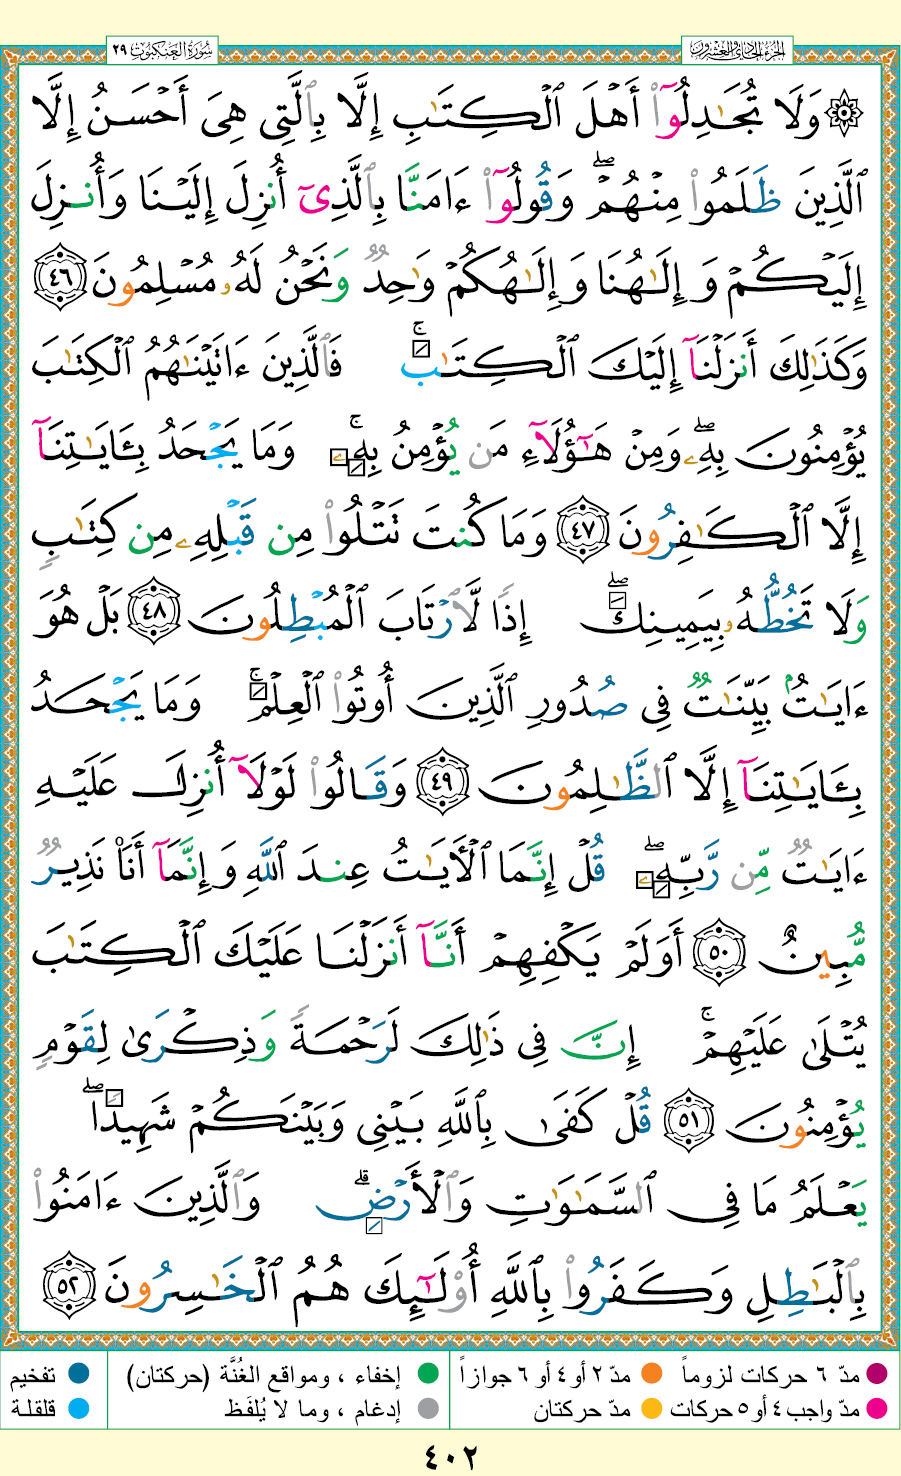 سُورَةُ العَنكبُوت ٢٩
الجُزءُ الحَادِي وَالعِشرُونَ
۞ وَلَا تُجَـٰدِلُوٓا۟ أَهْلَ ٱلْكِتَـٰبِ إِلَّا بِٱلَّتِى هِىَ أَحْسَنُ إِلَّا
ٱلَّذِينَ ظَلَمُوا۟ مِنْهُمْ ۖ وَقُولُوٓا۟ ءَامَنَّا بِٱلَّذِىٓ أُنزِلَ إِلَيْنَا وَأُنزِلَ
إِلَيْكُمْ وَإِلَـٰهُنَا وَإِلَـٰهُكُمْ وَٰحِدٌ وَنَحْنُ لَهُۥ مُسْلِمُونَ ٤٦
وَكَذَٰلِكَ أَنزَلْنَآ إِلَيْكَ ٱلْكِتَـٰبَ ۚ فَٱلَّذِينَ ءَاتَيْنَـٰهُمُ ٱلْكِتَـٰبَ
يُؤْمِنُونَ بِهِۦ ۖ وَمِنْ هَـٰٓؤُلَآءِ مَن يُؤْمِنُ بِهِۦ ۚ وَمَا يَجْحَدُ بِـَٔايَـٰتِنَآ
إِلَّا ٱلْكَـٰفِرُونَ ٤٧ وَمَا كُنتَ تَتْلُوا۟ مِن قَبْلِهِۦ مِن كِتَـٰبٍ
وَلَا تَخُطُّهُۥ بِيَمِينِكَ ۖ إِذًا لَّٱرْتَابَ ٱلْمُبْطِلُونَ ٤٨ بَلْ هُوَ
ءَايَـٰتٌۢ بَيِّنَـٰتٌ فِى صُدُورِ ٱلَّذِينَ أُوتُوا۟ ٱلْعِلْمَ ۚ وَمَا يَجْحَدُ
بِـَٔايَـٰتِنَآ إِلَّا ٱلظَّـٰلِمُونَ ٤٩ وَقَالُوا۟ لَوْلَآ أُنزِلَ عَلَيْهِ
ءَايَـٰتٌ مِّن رَّبِّهِۦ ۖ قُلْ إِنَّمَا ٱلْـَٔايَـٰتُ عِندَ ٱللَّهِ وَإِنَّمَآ أَنَا۠ نَذِيرٌ
مُّبِينٌ ٥٠ أَوَلَمْ يَكْفِهِمْ أَنَّآ أَنزَلْنَا عَلَيْكَ ٱلْكِتَـٰبَ
يُتْلَىٰ عَلَيْهِمْ ۚ إِنَّ فِى ذَٰلِكَ لَرَحْمَةً وَذِكْرَىٰ لِقَوْمٍ
يُؤْمِنُونَ ٥١ قُلْ كَفَىٰ بِٱللَّهِ بَيْنِى وَبَيْنَكُمْ شَهِيدًا ۖ
يَعْلَمُ مَا فِى ٱلسَّمَـٰوَٰتِ وَٱلْأَرْضِ ۗ وَٱلَّذِينَ ءَامَنُوا۟
بِٱلْبَـٰطِلِ وَكَفَرُوا۟ بِٱللَّهِ أُو۟لَـٰٓئِكَ هُمُ ٱلْخَـٰسِرُونَ ٥٢
مدّ ٦ حركات لزوماً مدّ ٢ أو ٤ أو ٦ جوازاً إخفاء ، ومواقع الغُنَّة (حركتان) تفخيم
مدّ واجب ٤ أو ٥ حركات مدّ حركتان إدغام ، وما لا يُلفَظ قلقلة
٤٠٢